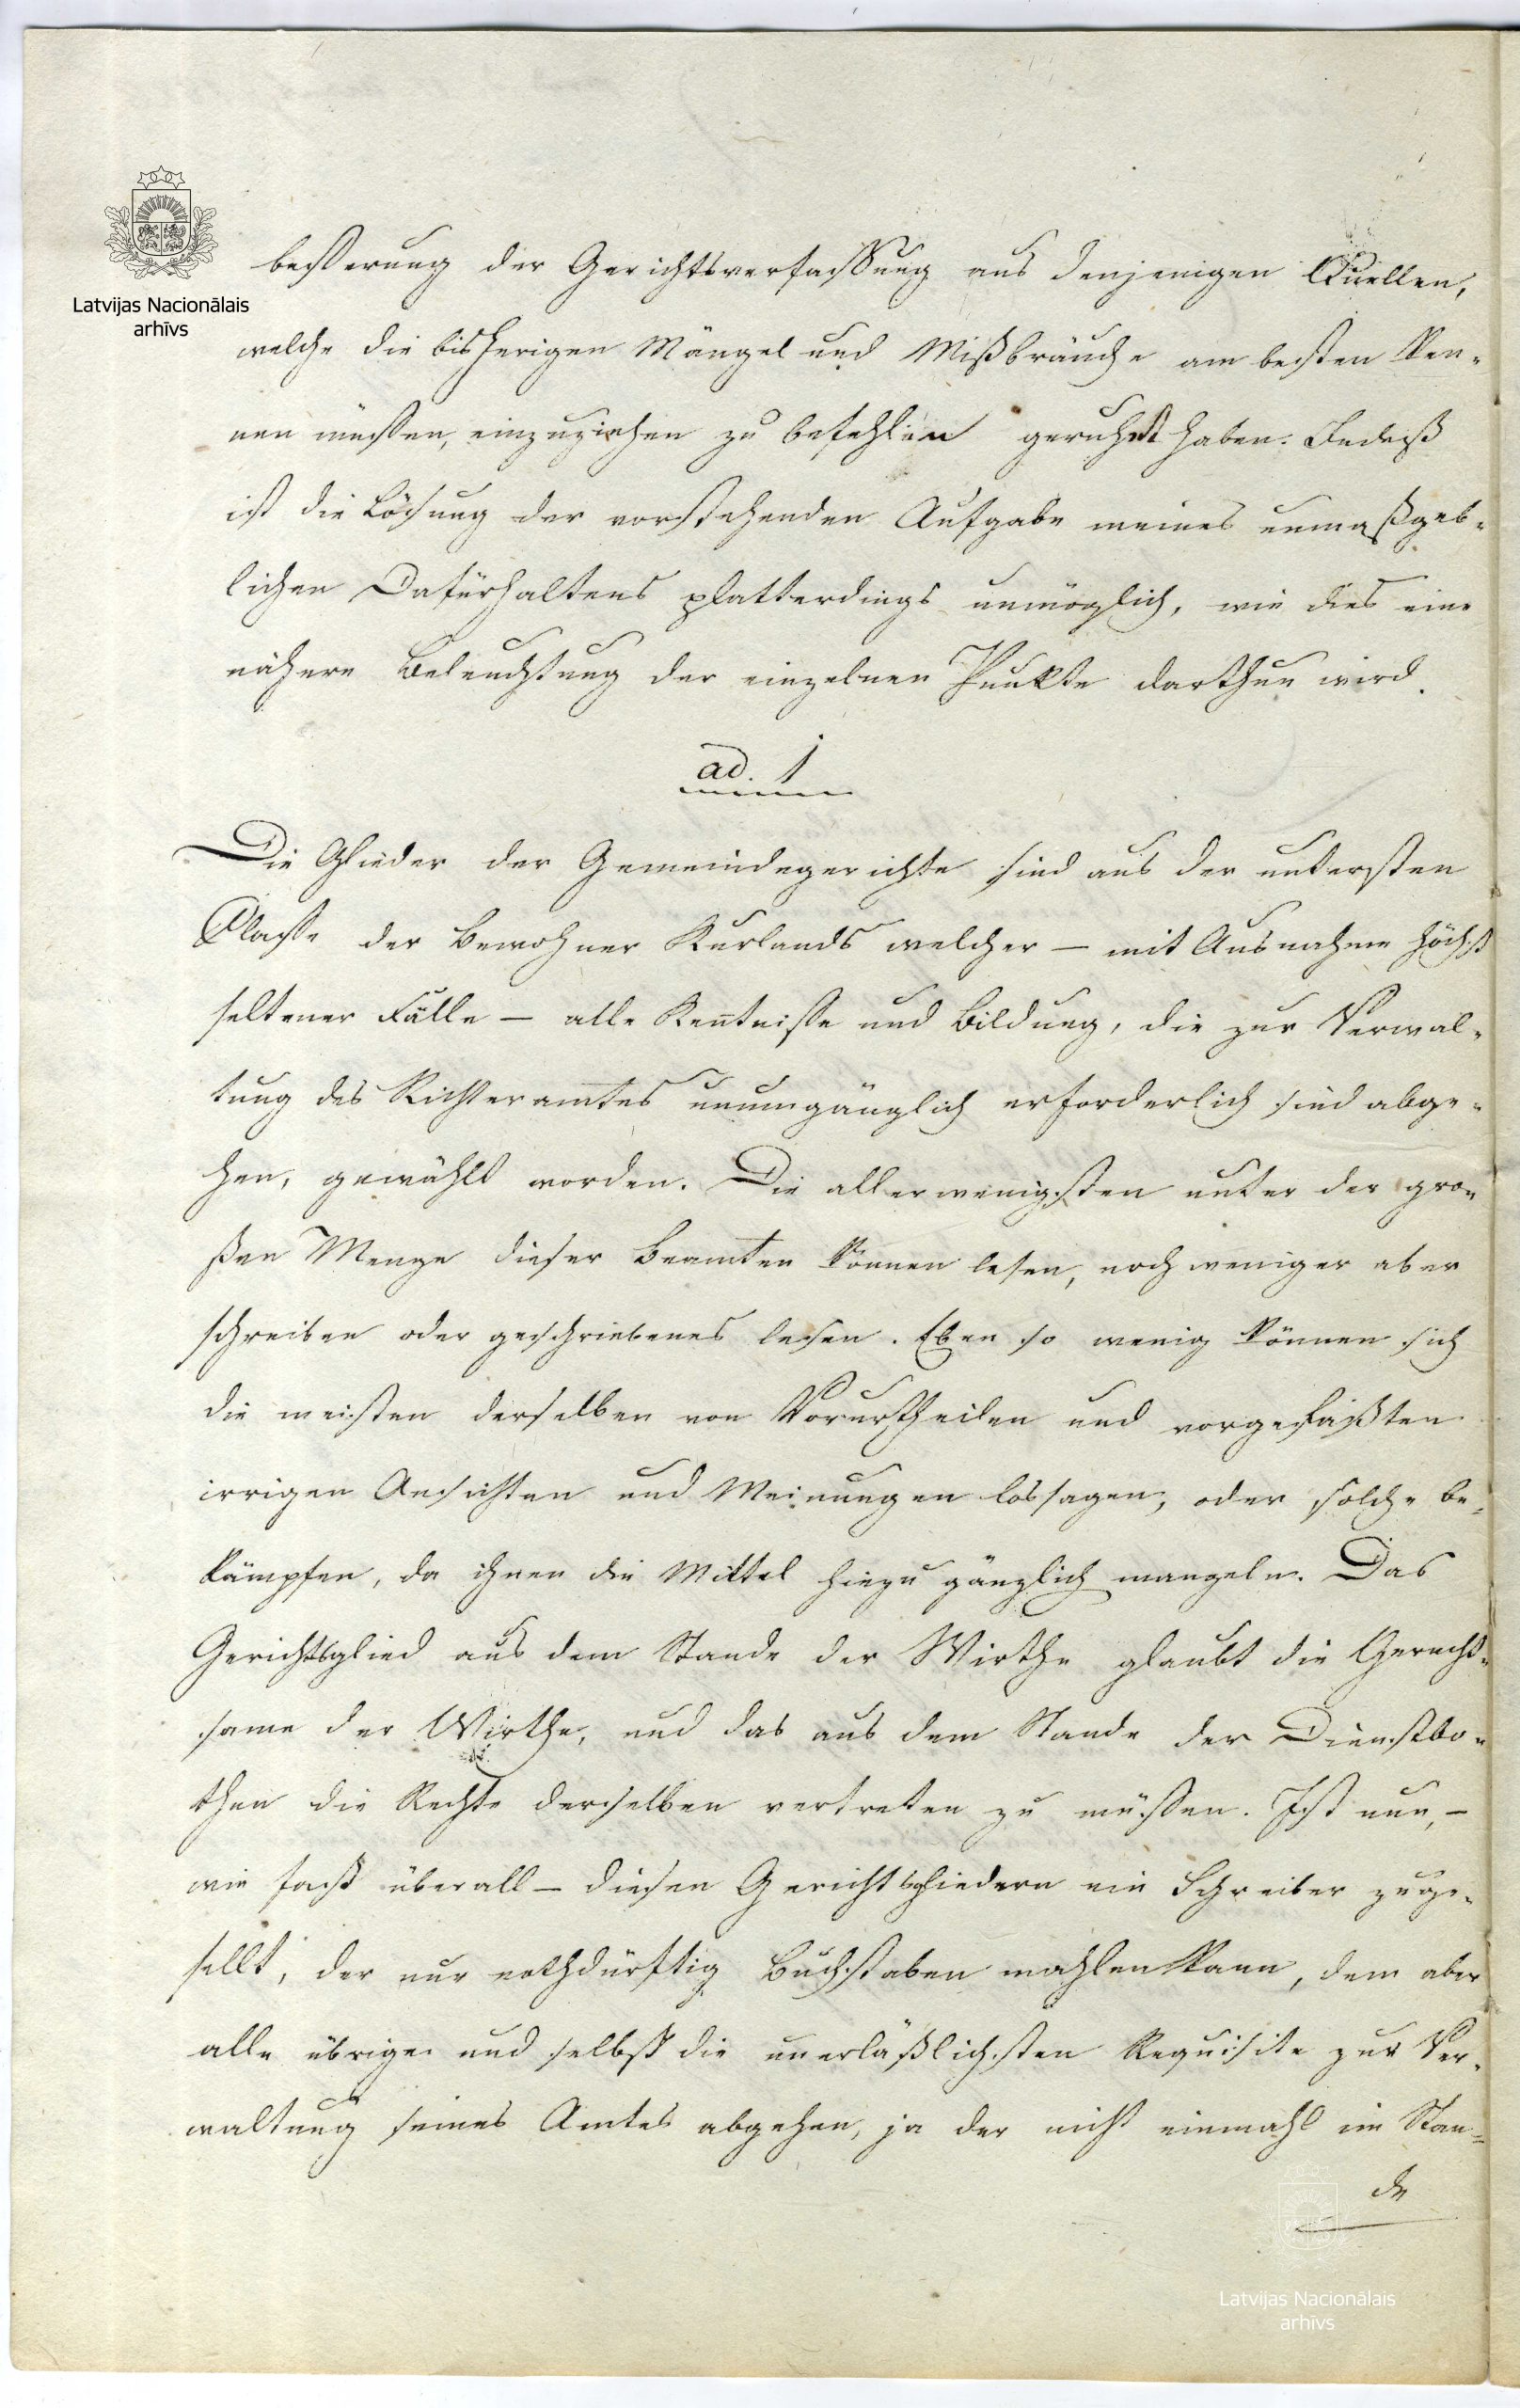 Latvijas Nacionālais
arhīvs
beßerung der Gerichtsverfaßung aus denjenigen Quellen,
welche die bisherigen Mängel und Mißbräuche am besten ken-
nen müßen, einzuziehen zu befehlen geruht haben. Indeß
ist die Lösung der vorstehenden Aufgabe meines unmaßgeb-
lichen Dafürhaltens platterdings unmöglich, wie dies eine
nähere Beleuchtung der einzelnen Punkte darthun wird.
ad. 1
Die Glieder der Gemeindegerichte sind aus der untersten
Claße der Bewohner Kurlands welcher – mit Ausnahme höchst
seltener Fälle – alle Kentniße und Bildung, die zur Verwal-
tung des Richteramtes unumgänglich erforderlich sind abge-
hen, gewählt worden. Die allerwenigsten unter der gro-
ßen Menge dieser Beamten können lesen, noch weniger aber
schreiben oder geschriebenes lesen. Eben so wenig können sich
die meisten derselben von Vorurtheilen und vorgefaßten
irrigen Ansichten und Meinungen lossagen, oder solche be-
kämpfen, da ihnen die Mittel hiezu gänzlich mangeln. Das
Gerichtsglied aus dem Stande der Wirthe glaubt die Gerecht-
same der Wirthe, und das aus dem Stande der Dienstbo-
then die Rechte derselben vertreten zu müßen. Ist nun, –
wie fast überall – diesen Gerichtsgliedern ein Schreiber zuge-
sellt, der nur nothdürftig Buchstaben mahlen kann, dem aber
alle übrige und selbst die unerläßlichsten Requisite zur Ver-
waltung seines Amtes abgehen, ja der nicht einmahl im Stan-
de
Latvijas Nacionālais
arhīvs